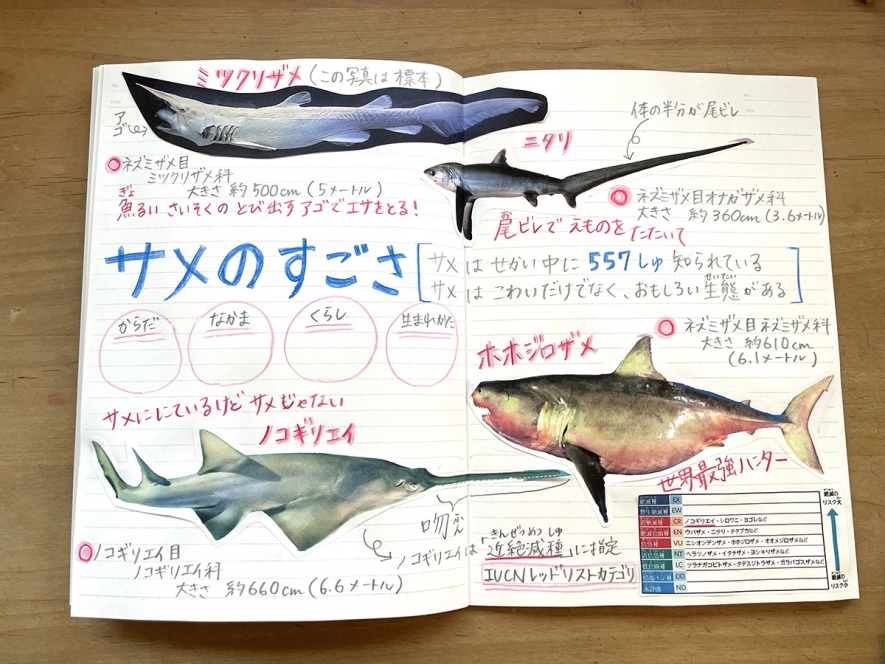 ミツクリザメ(この写真は標本)
アゴ
ネズミザメ目
ミツクリザメ科
大きさ 約500cm(5メートル)
ぎょ
魚るい さいそくの とび出す アゴで エサをとる!
体の半分が尾ビレ
ニタリ
ネズミザメ目オナガザメ科
大きさ 約360cm(3.6メートル)
お
尾ビレで えものを たたいて
サメのすごさ
サメ は せかい中に 557しゅ 知られている
せいたい
サメ は こわいだけでなく、おもしろい 生態がある
からだ
なかま
くらし
生まれかた
ホホジロザメ
ネズミザメ目 ネズミザメ科
大きさ 約610cm
(6.1メートル)
世界最強ハンター
サメににているけど サメじゃない
ノコギリエイ
吻
ふん
ノコギリエイ目
ノコギリエイ科
大きさ 約660cm(6.6メートル)
きんぜつめつしゅ
ノコギリエイは「近絶滅種」に指定
IUCNレッドリストカテゴリ
絶滅種 EX
野生絶滅種 EW
CR ノコギリエイ・シロワニ・ヨゴレなど
EN ウバザメ・ニタリ・ドタブカなど
VU ニシオンデンザメ・ホホジロザメ・オオメジロザメなど
NT ヘラツノザメ・イタチザメ・ヨシキリザメなど
LC ツラナガコビトザメ・タテスジトラザメ・ガラパゴスザメなど
DD
ND
絶滅の
リスク大
絶滅の
リスク小